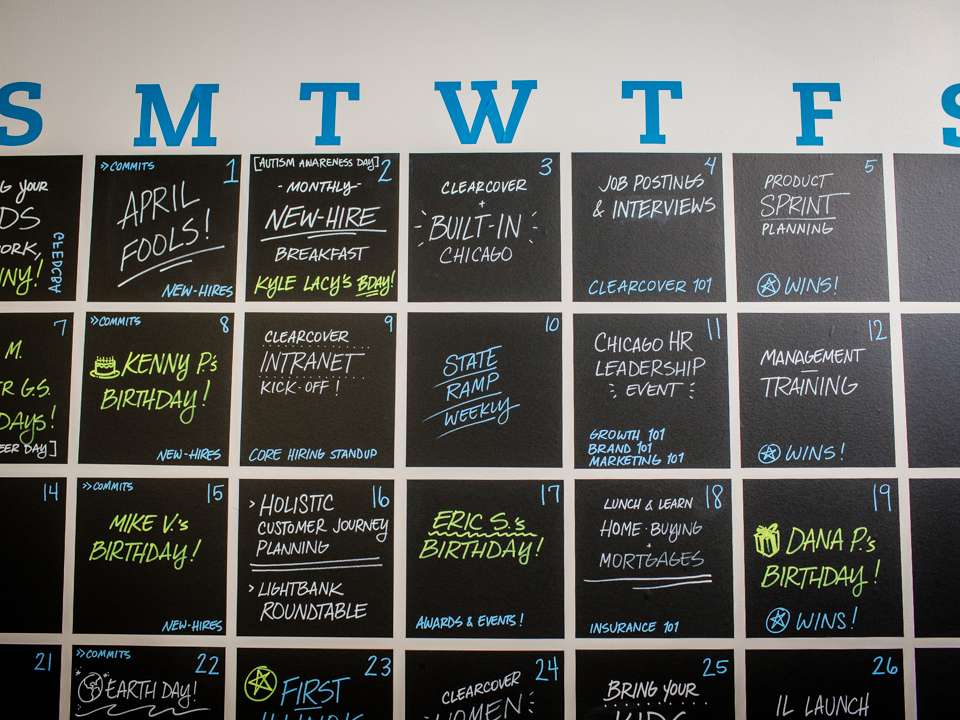 S M T W T F S
G YOUR
DS
ORK,
NY!
GFEDCBA
1
»COMMITS
APRIL
FOOLS!
NEW-HIRES
2
[AUTISM AWARENESS DAY]
-MONTHLY-
NEW-HIRE
BREAKFAST
KYLE LACY'S BDAY!
3
CLEARCOVER
+
BUILT-IN
CHICAGO
4
JOB POSTINGS
& INTERVIEWS
CLEARCOVER 101
5
PRODUCT
SPRINT
PLANNING
WINS!
7
M.
R G.S.
DAYS!
EER DAY]
8
»COMMITS
KENNY P.'s
BIRTHDAY!
NEW-HIRES
9
CLEARCOVER
INTRANET
KICK-OFF!
CORE HIRING STANDUP
10
STATE
RAMP
WEEKLY
11
CHICAGO HR
LEADERSHIP
EVENT
GROWTH 101
BRAND 101
MARKETING 101
12
MANAGEMENT
TRAINING
WINS!
14
15
»COMMITS
MIKE V.'s
BIRTHDAY!
NEW-HIRES
16
> HOLISTIC
CUSTOMER JOURNEY
PLANNING
> LIGHTBANK
ROUNDTABLE
17
ERIC S.'s
BIRTHDAY!
AWARDS & EVENTS!
18
LUNCH & LEARN
HOME-BUYING
+
MORTGAGES
INSURANCE 101
19
DANA P.'s
BIRTHDAY!
WINS!
21
22
»COMMITS
EARTH DAY!
23
FIRST
ILLINOIS
24
CLEARCOVER
WOMEN
25
BRING YOUR
KIDS
26
IL LAUNCH